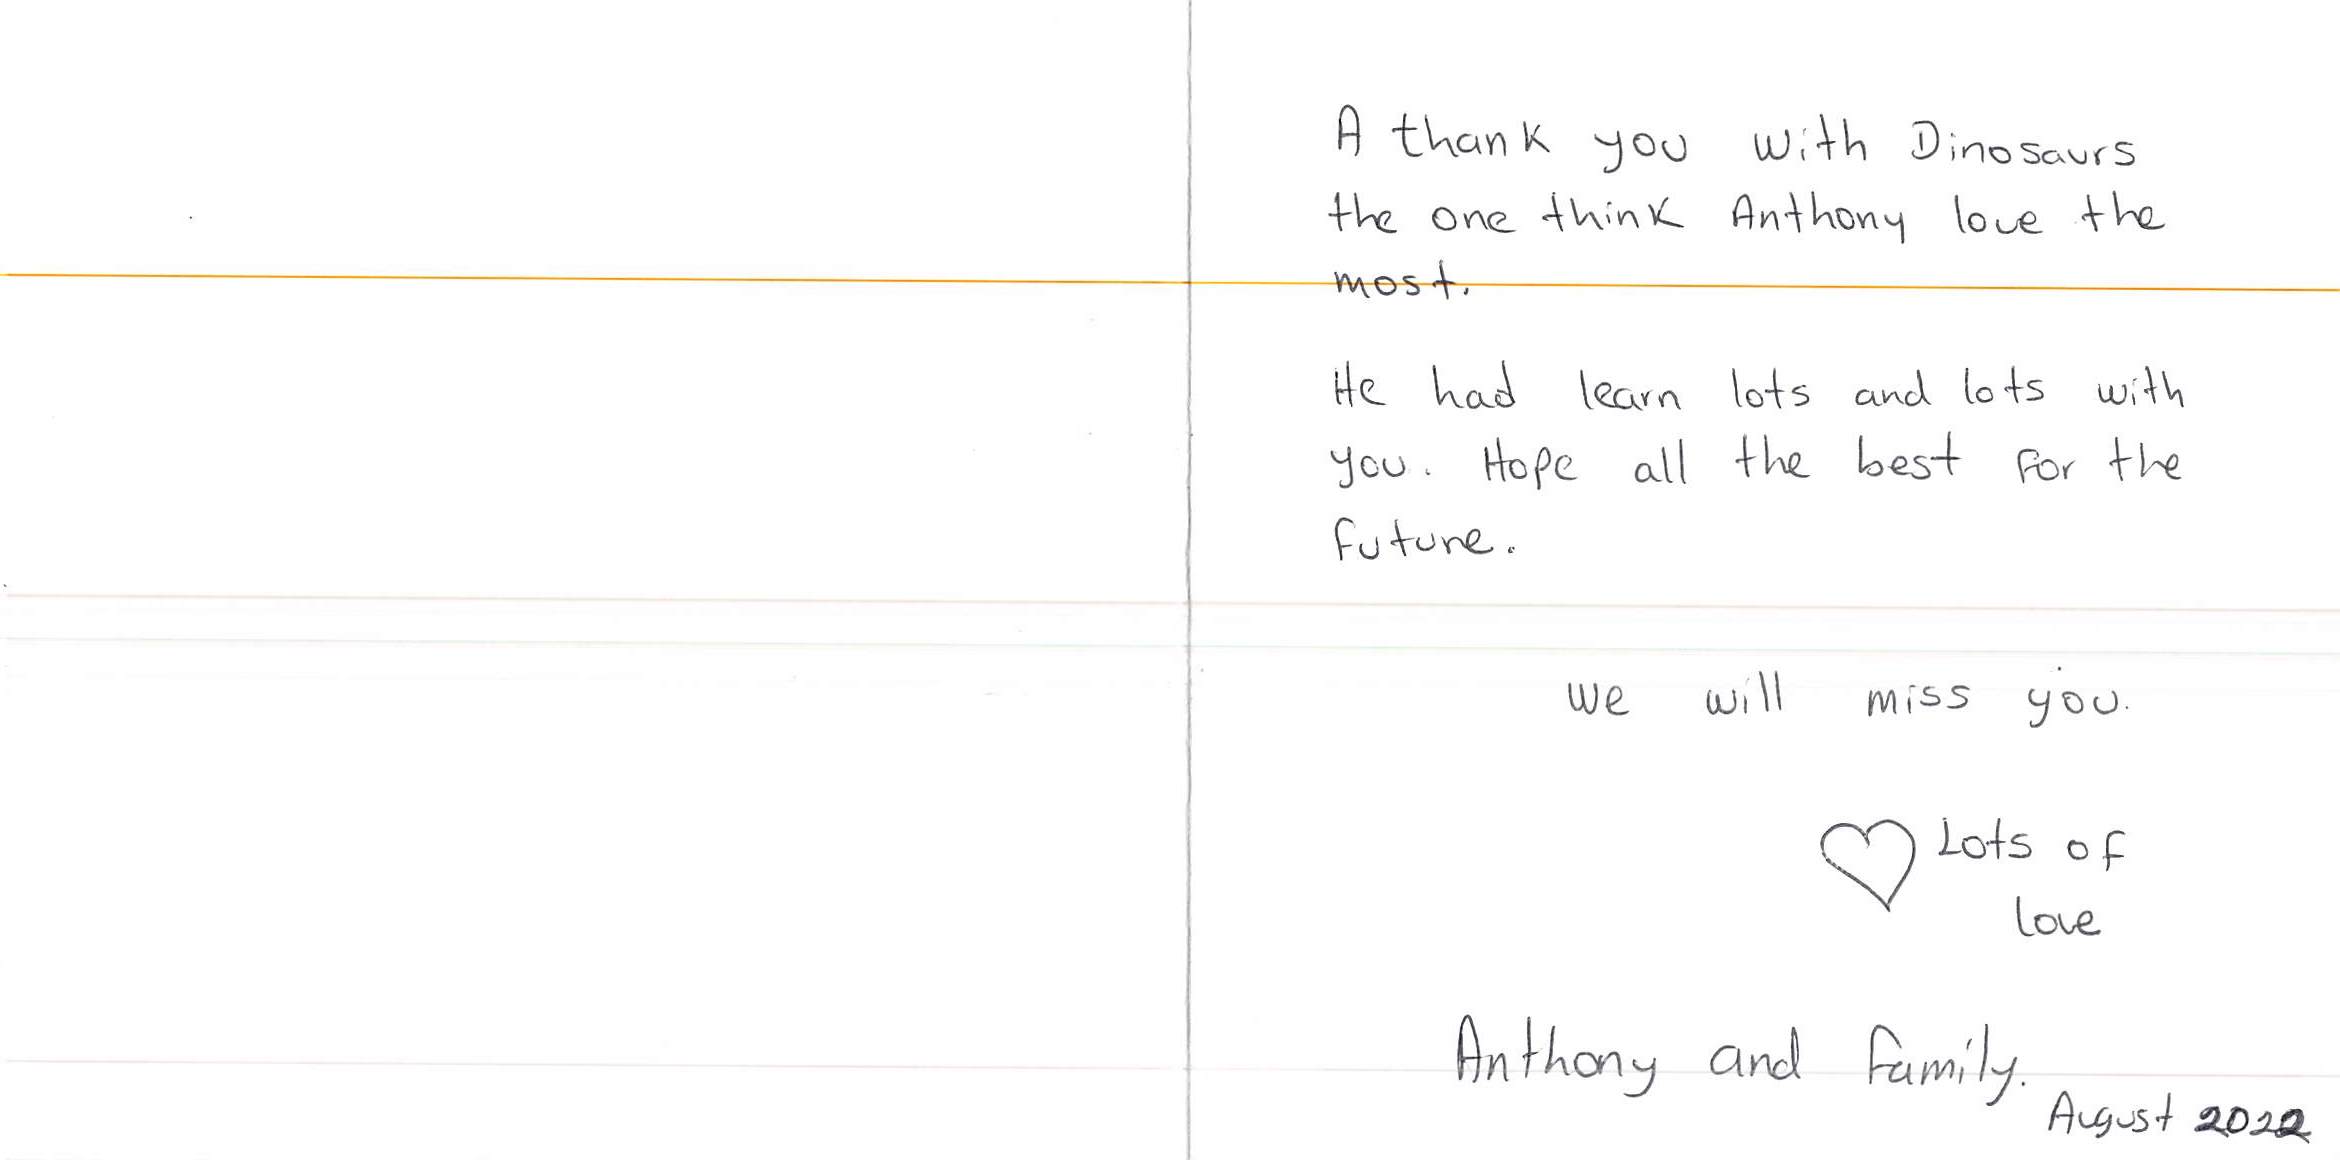 A thank you with Dinosaurs
the one think Anthony love the
most.
He had learn lots and lots with
you. Hope all the best for the
future.
We will miss you.
Lots of
love
Anthony and family.
August 2022